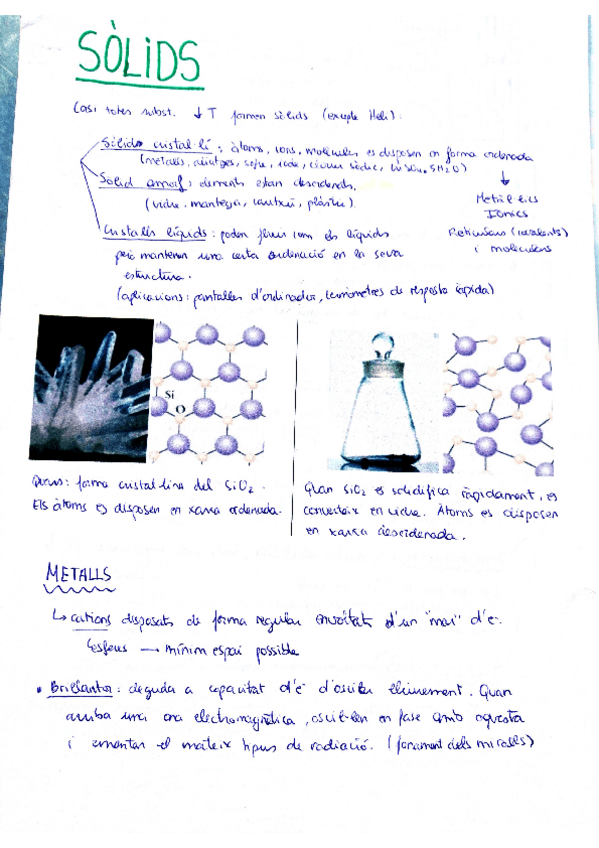 SÒLIDS
Casi totes subst. ↓T formen sòlids (excepte Heli).
Sòlids cristal·lí: àtoms, ions, molècules es disposen en forma ordenada
(metalls, aliatges, sofre, iode,
Sòlid amorf: elements estan desordenats.
(vidre, mantega, cautxú, plàstic)
Metàl·lics
Iònics
Reticulars (covalents)
i moleculars
Cristalls líquids: poden fluir com els líquids
però mantenen una certa ordenació en la seva
estructura.
(aplicacions: pantalles d'ordinador, termòmetres de resposta ràpida)
Si
O
Quars: forma cristal·lina del SiO2.
Els àtoms es disposen en xarxa ordenada.
Quan SiO2 es solidifica ràpidament, es
converteix en vidre. Àtoms es disposen
en xarxa desordenada.
METALLS
↳ cations disposats de forma regular envoltats d'un "mar" d'e-
esferes → mínim espai possible
• Brillantor: deguda a capacitat d'e- d'oscil·lar lliurement. Quan
arriba una ona electromagnètica, oscil·len en fase amb aquesta
i emeten el mateix tipus de radiació. (fonament dels miralls)